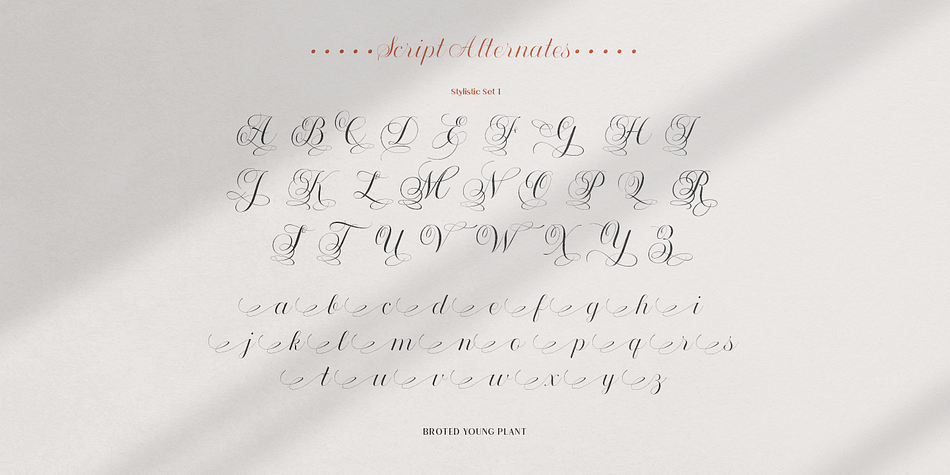 Script Alternates
Stylistic Set 1
A B C D E F G H I
J K L M N O P Q R
S T U V W X Y Z
a b c d e f g h i
j k l m n o p q r s
t u v w x y z
BROTED YOUNG PLANT